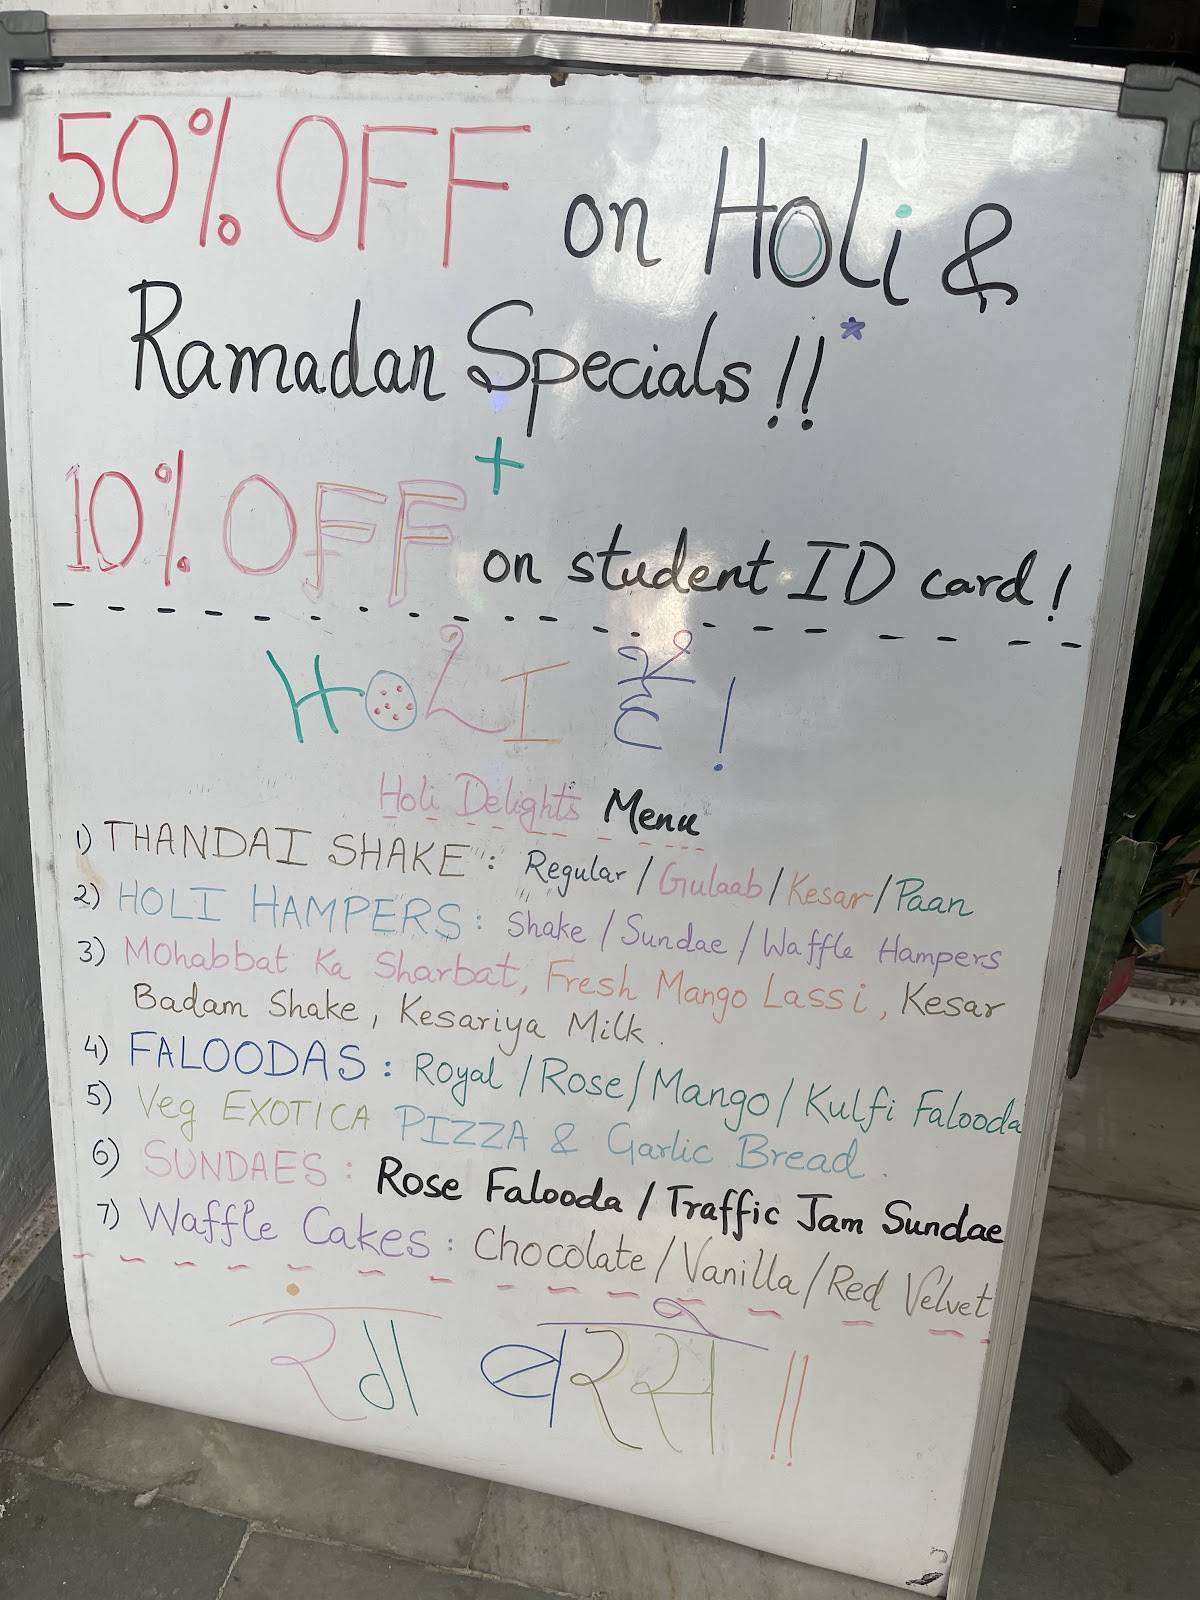 50% OFF on Holi &
Ramadan Specials!!*
+
10% OFF on student ID card!
HOLI है!
Holi Delights Menu
1) THANDAI SHAKE: Regular/Gulaab/Kesar/Paan
2) HOLI HAMPERS: Shake/Sundae/Waffle Hampers
3) Mohabbat Ka Sharbat, Fresh Mango Lassi, Kesar
Badam Shake, Kesariya Milk.
4) FALOODAS: Royal/Rose/Mango/Kulfi Falooda
5) Veg EXOTICA PIZZA & Garlic Bread.
6) SUNDAES: Rose Falooda/Traffic Jam Sundae
7) Waffle Cakes: Chocolate/Vanilla/Red Velvet
रंग बरसे!!